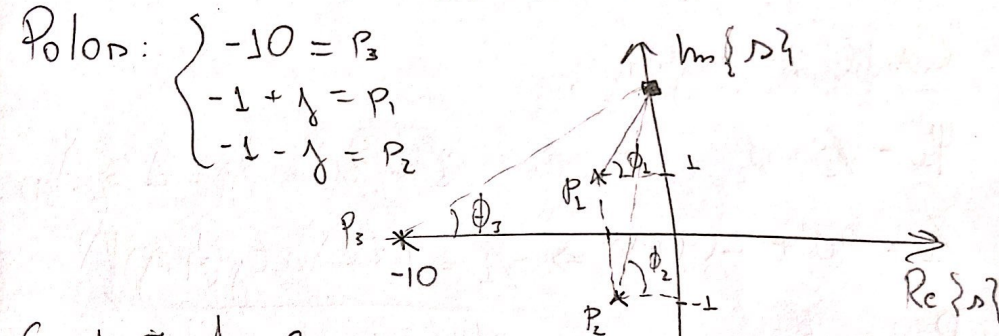 Polos: { -10 = P3
-1 + j = P1
-1 - j = P2
Im{s}
P1 ϕ1 1
P3 ϕ3
-10
Re{s}
P2 ϕ2 -1